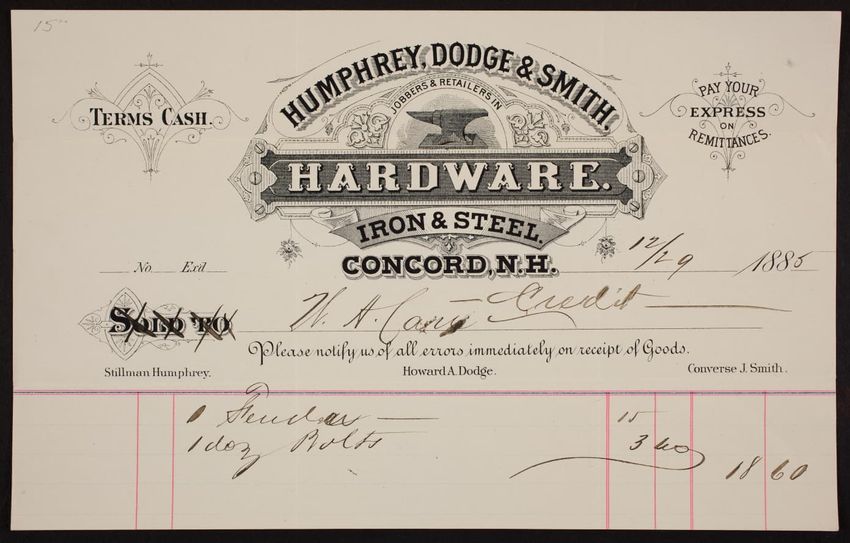 15
HUMPHREY, DODGE & SMITH.
JOBBERS & RETAILERS IN
TERMS CASH.
PAY YOUR
EXPRESS
ON
REMITTANCES.
HARDWARE.
IRON & STEEL.
CONCORD, N.H.
No. Exd
12/29 1885
SOLD TO W. A. Credit
Please notify us of all errors immediately on receipt of Goods.
Stillman Humphrey. Howard A. Dodge. Converse J. Smith.
Fender 15
1 doz Bolts 3 60
18 60